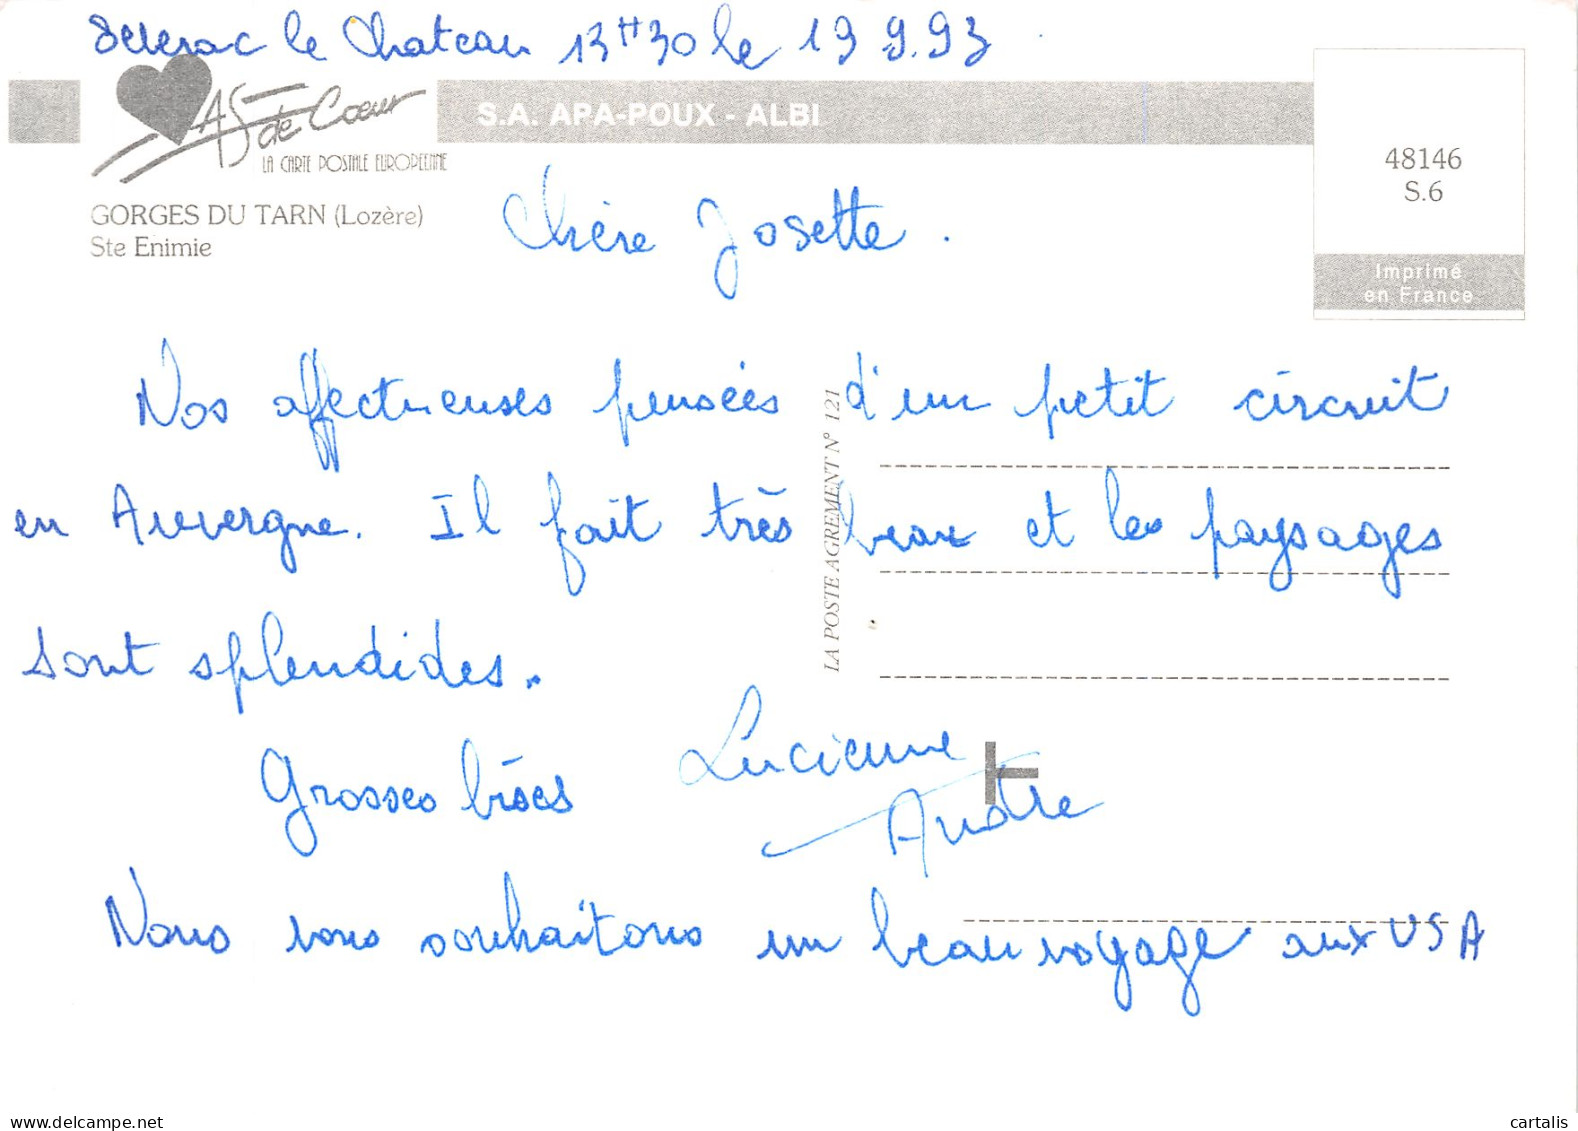 Severac le Chateau 13H30 le 19 9.93
AS de Coeur
LA CARTE POSTALE EUROPEENNE
S.A. APA-POUX - ALBI
48146
S.6
Imprimé
en France
GORGES DU TARN (Lozère)
Ste Enimie
Chère Josette.
Nos affectueuses pensées d'un petit circuit
en Auvergne. Il fait très beau et les paysages
sont splendides.
LA POSTE AGREMENT N° 121
Grosses bises Lucienne
André
Nous vous souhaitons un beau voyage aux USA
cartalis
www.delcampe.net